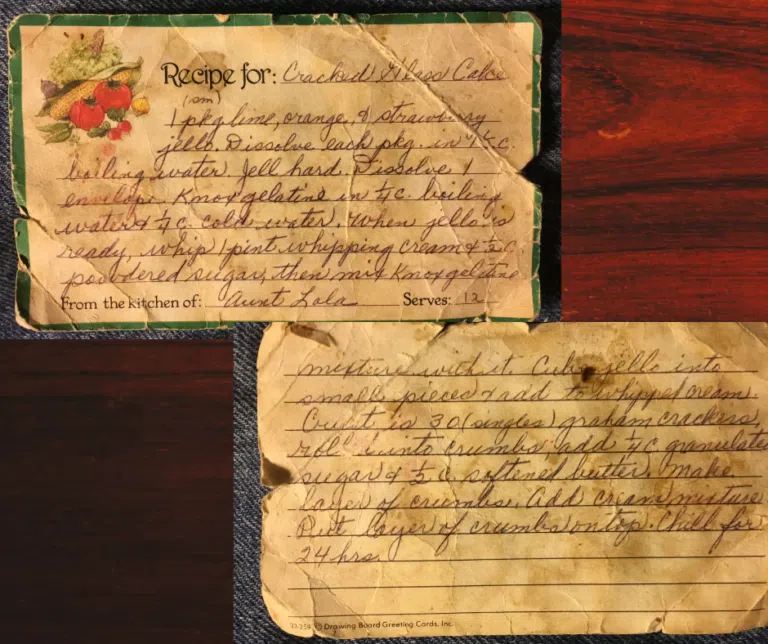 Recipe for: Cracked Glass Cake
(sm)
1 pkg lime, orange, & strawberry
jello. Dissolve each pkg. in 1 ½ c.
boiling water. Jell hard. Dissolve 1
envelope Knox gelatine in ¼ c. boiling
water & ¼ c. cold water. When jello is
ready, whip 1 pint whipping cream & ½ c.
powdered sugar, then mix Knox gelatine
From the kitchen of: Aunt Lola Serves: 12
mixture with it. Cube jello into
small pieces & add to whipped cream.
Crust is 30 (singles) graham crackers,
roll into crumbs, add ¼ c granulated
sugar & ½ c. softened butter. Make
layer of crumbs. Add cream mixture
Put layer of crumbs on top. Chill for
24 hrs.
Drawing Board Greeting Cards, Inc.